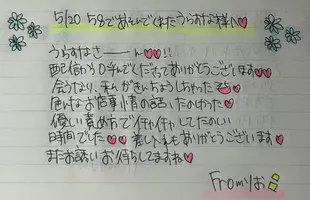 5/20 58であそんでくれたうらすなな様へ♡
うらすなさーーん♡♡!!
配信から呼んでくださってありがとうございます♡♡
会うなり、私がきんちょうしちゃった
な お 事情の話 たのしかった♡
優しい責め方でイチャイチャしてたのしい
時間でした♡♡ 差し入れもありがとうございます♡
またお誘いお待ちしてますね♡
Fromりお